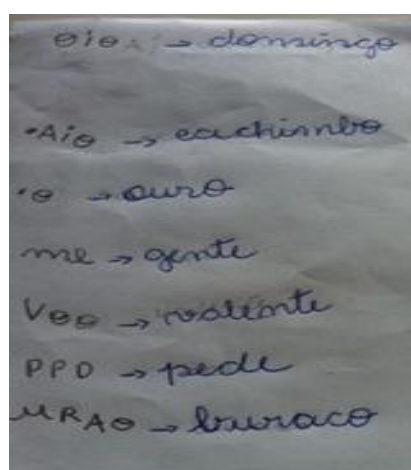 oio → domingo
•Aio → cachimbo
•o → ouro
me → gente
Voo → valente
PPD → pede
URAO → buraco